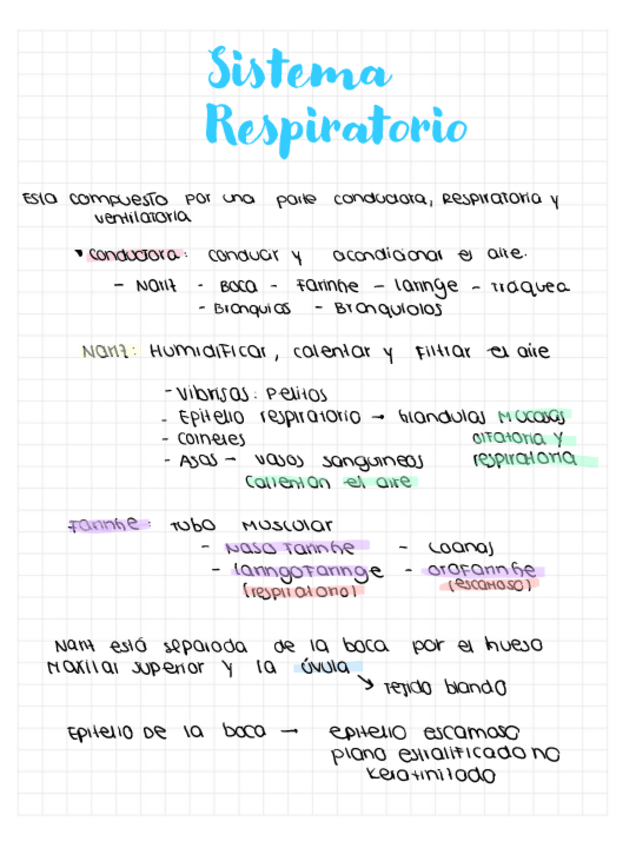 Sistema
Respiratorio
Está compuesto por una parte conductora, Respiratoria y
ventilatoria
• Conductora: conducir y acondicionar el aire.
- Nariz - Boca - Farinhe - laringe - traquea
- Bronquios - Bronquiolos
Nariz: Humidificar, calentar y filtrar el aire
- Vibrisas: Pelitos
- Epitelio respiratorio → Glandulas Mucosas
- Cornetes olfatoria y
- Asas - vasos sanguineos respiratoria
Calientan el aire
Farinhe: tubo muscular
- Nasofarinhe - Coanas
- laringofaringe - orofarinhe
(respiratorio) (escamoso)
Nariz está separada de la boca por el hueso
Maxilar superior y la úvula
↘ Tejido blando
Epitelio de la boca → epitelio escamoso
plano estratificado no
keratinizado